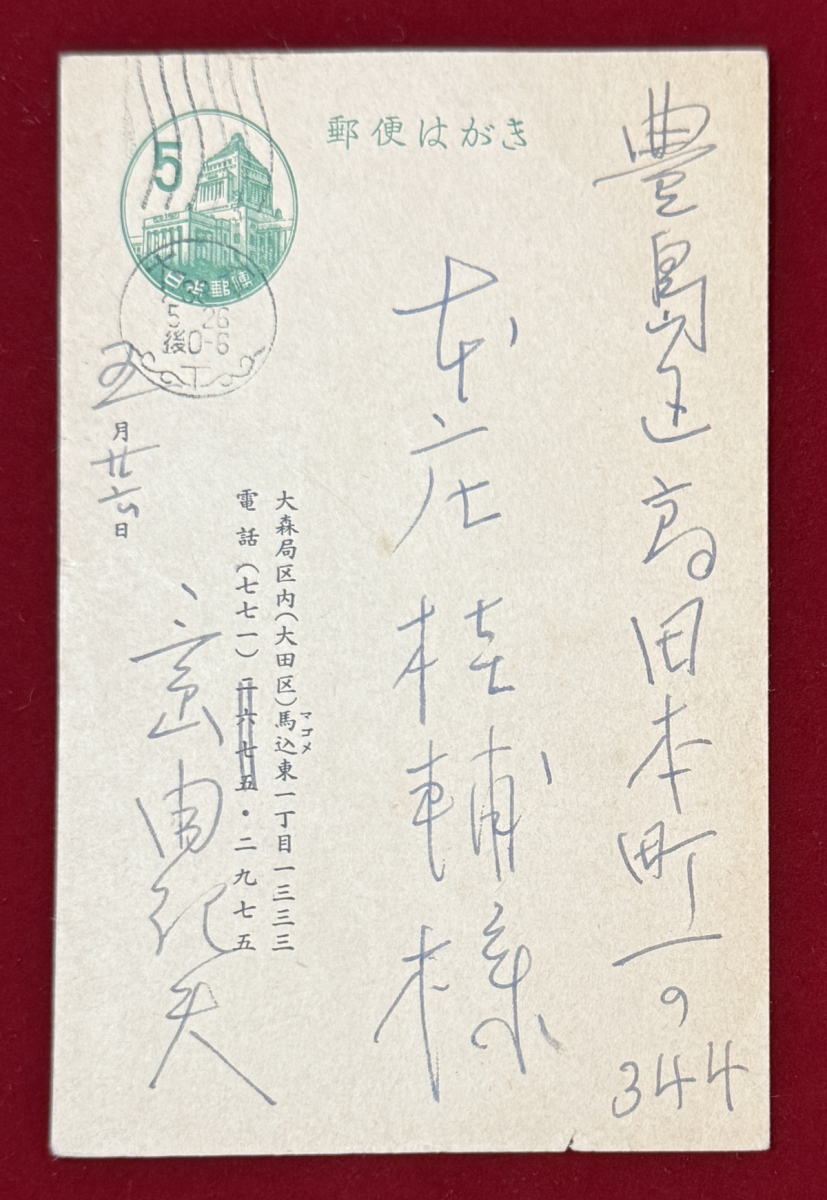 郵便はがき
5
日本郵便
5.26
後0-6
T
豊島区高田本町一の344
本庄桂輔様
大森局区内(大田区)馬込東一丁目一三三三
マゴメ
電話(七七一)二六七五・二九七五
五月廿六日
三島由紀夫